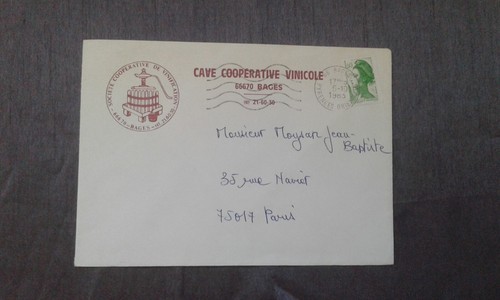 SOCIETE COOPERATIVE DE VINIFICATION
66670 - BAGES
CAVE COOPERATIVE VINICOLE
66670 BAGES
21-60-30
Monsieur Moysan Jean-
Baptiste
35 rue Nariot
75017 Paris